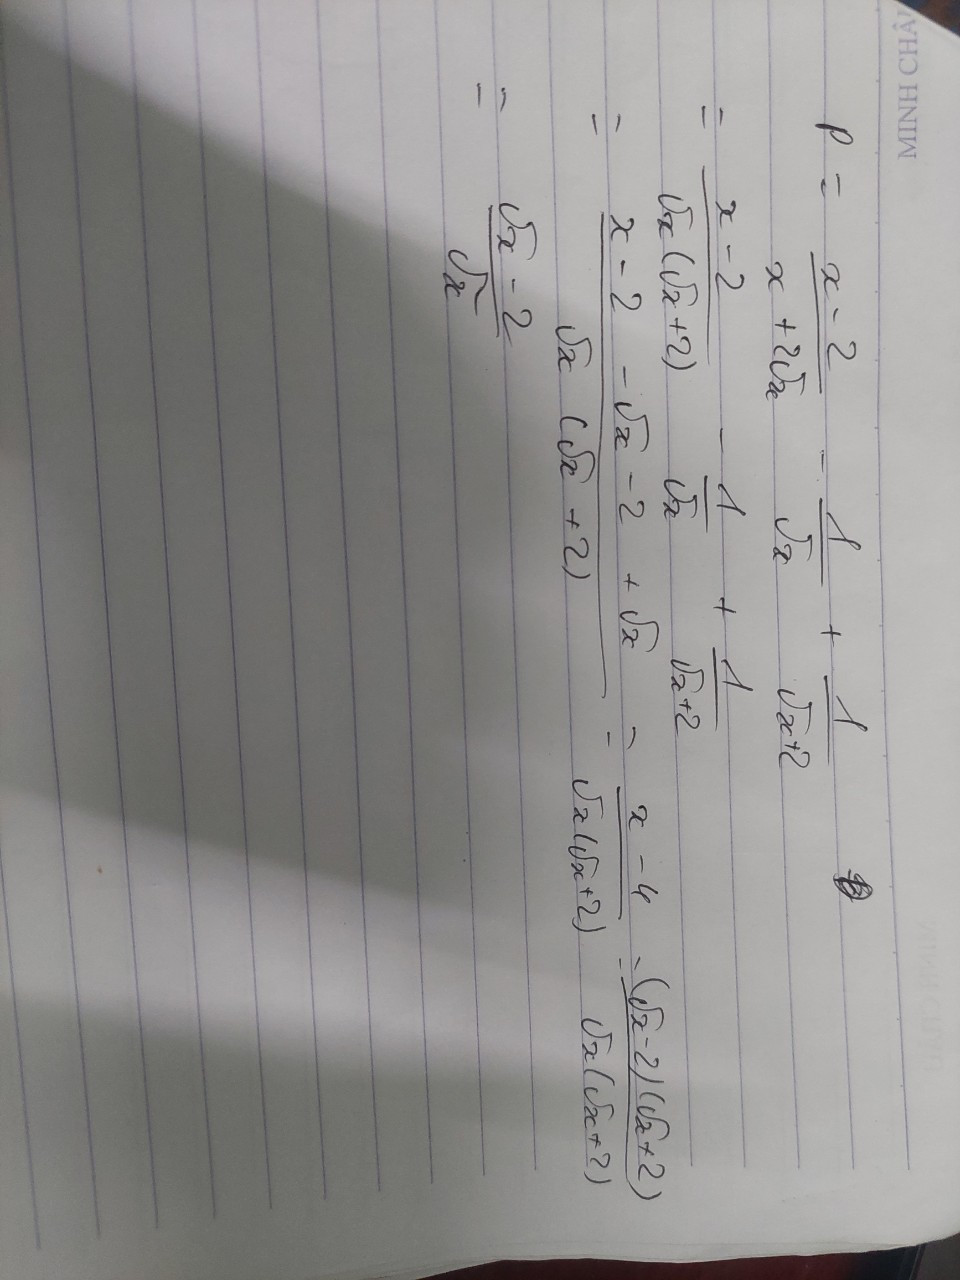 MINH CHÂU
P = \frac{x-2}{x+2\sqrt{x}} - \frac{1}{\sqrt{x}} + \frac{1}{\sqrt{x}+2}
= \frac{x-2}{\sqrt{x}(\sqrt{x}+2)} - \frac{1}{\sqrt{x}} + \frac{1}{\sqrt{x}+2}
= \frac{x-2-\sqrt{x}-2+\sqrt{x}}{\sqrt{x}(\sqrt{x}+2)} = \frac{x-4}{\sqrt{x}(\sqrt{x}+2)} = \frac{(\sqrt{x}-2)(\sqrt{x}+2)}{\sqrt{x}(\sqrt{x}+2)}
= \frac{\sqrt{x}-2}{\sqrt{x}}